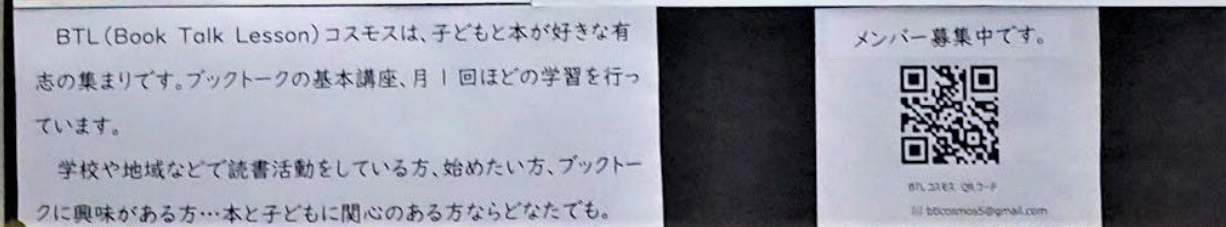 BTL(Book Talk Lesson)コスモスは、子どもと本が好きな有
志の集まりです。ブックトークの基本講座、月1回ほどの学習を行っ
ています。
学校や地域などで読書活動をしている方、始めたい方、ブックトー
クに興味がある方…本と子どもに関心のある方ならどなたでも。
メンバー募集中です。
BTLコスモス QRコード
btlcosmos5@gmail.com